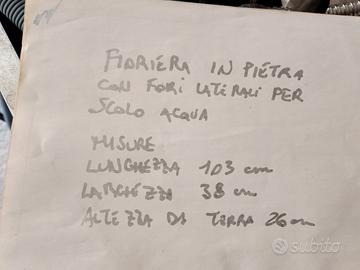 FIORIERA IN PIETRA
CON FORI LATERALI PER
SCOLO ACQUA
MISURE
LUNGHEZZA 103 cm
LARGHEZZA 38 cm
ALTEZZA DA TERRA 26 cm
subito